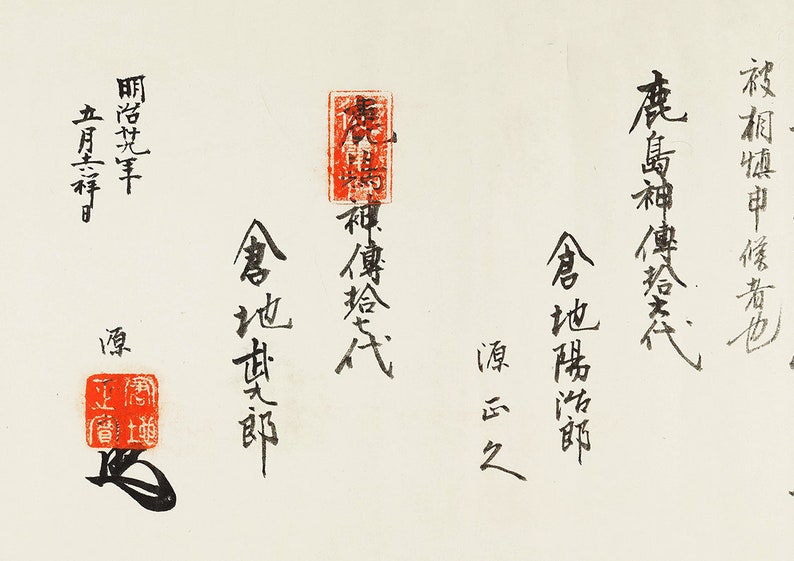 被相慎申候者也
鹿島神傳拾六代
倉地陽浩郎
源正久
鹿嶋神傳拾七代
倉地武九郎
明治廿九年
五月吉祥日
源正
倉地